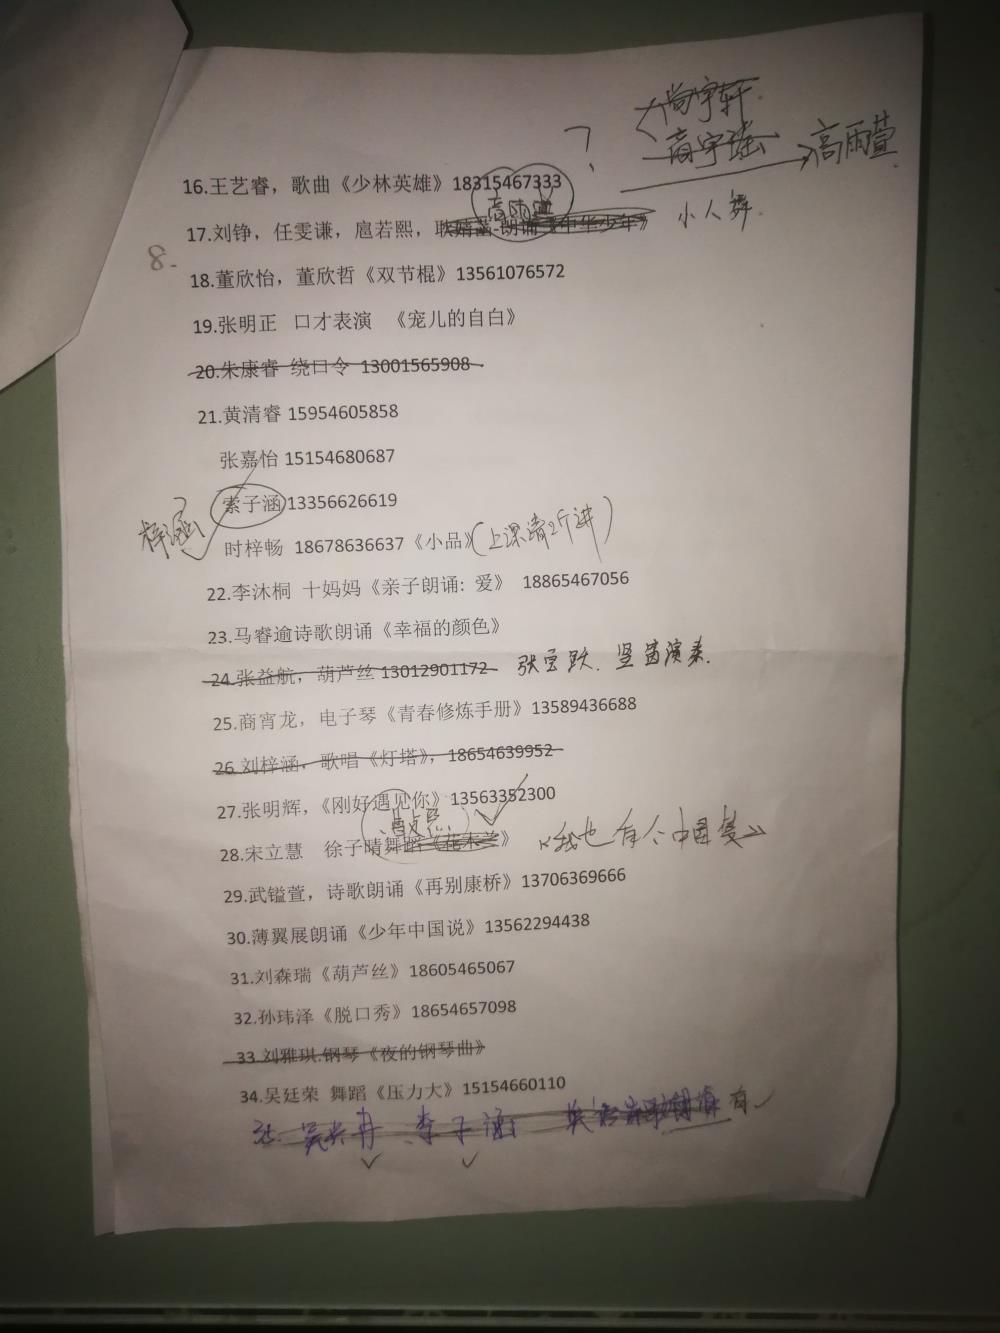 尚宇轩
高雨萱
?
16.王艺睿，歌曲《少林英雄》18315467333
高雨萱
17.刘铮，任雯谦，扈若熙，耿婧菡-朗诵《中华少年》
小人舞.
8.
18.董欣怡，董欣哲《双节棍》13561076572
19.张明正 口才表演 《宠儿的自白》
20.朱康睿 绕口令 13001565908
21.黄清睿 15954605858
张嘉怡 15154680687
索子涵 13356626619
梓涵
时梓畅 18678636637《小品》(上课请听讲)
22.李沐桐 十妈妈《亲子朗诵: 爱》 18865467056
23.马睿逾诗歌朗诵《幸福的颜色》
24.张益航，葫芦丝 13012901172 张宝跃. 竖笛演奏.
25.商宵龙，电子琴《青春修炼手册》13589436688
26.刘梓涵，歌唱《灯塔》，18654639952
27.张明辉，《刚好遇见你》13563352300
28.宋立慧 徐子晴舞蹈《花木兰》 《我也有个中国梦》
29.武镒萱，诗歌朗诵《再别康桥》13706369666
30.薄翼展朗诵《少年中国说》13562294438
31.刘森瑞《葫芦丝》18605465067
32.孙玮泽《脱口秀》18654657098
33.刘雅琪.钢琴《夜的钢琴曲》
34.吴廷荣 舞蹈《压力大》15154660110
35. 李子涵